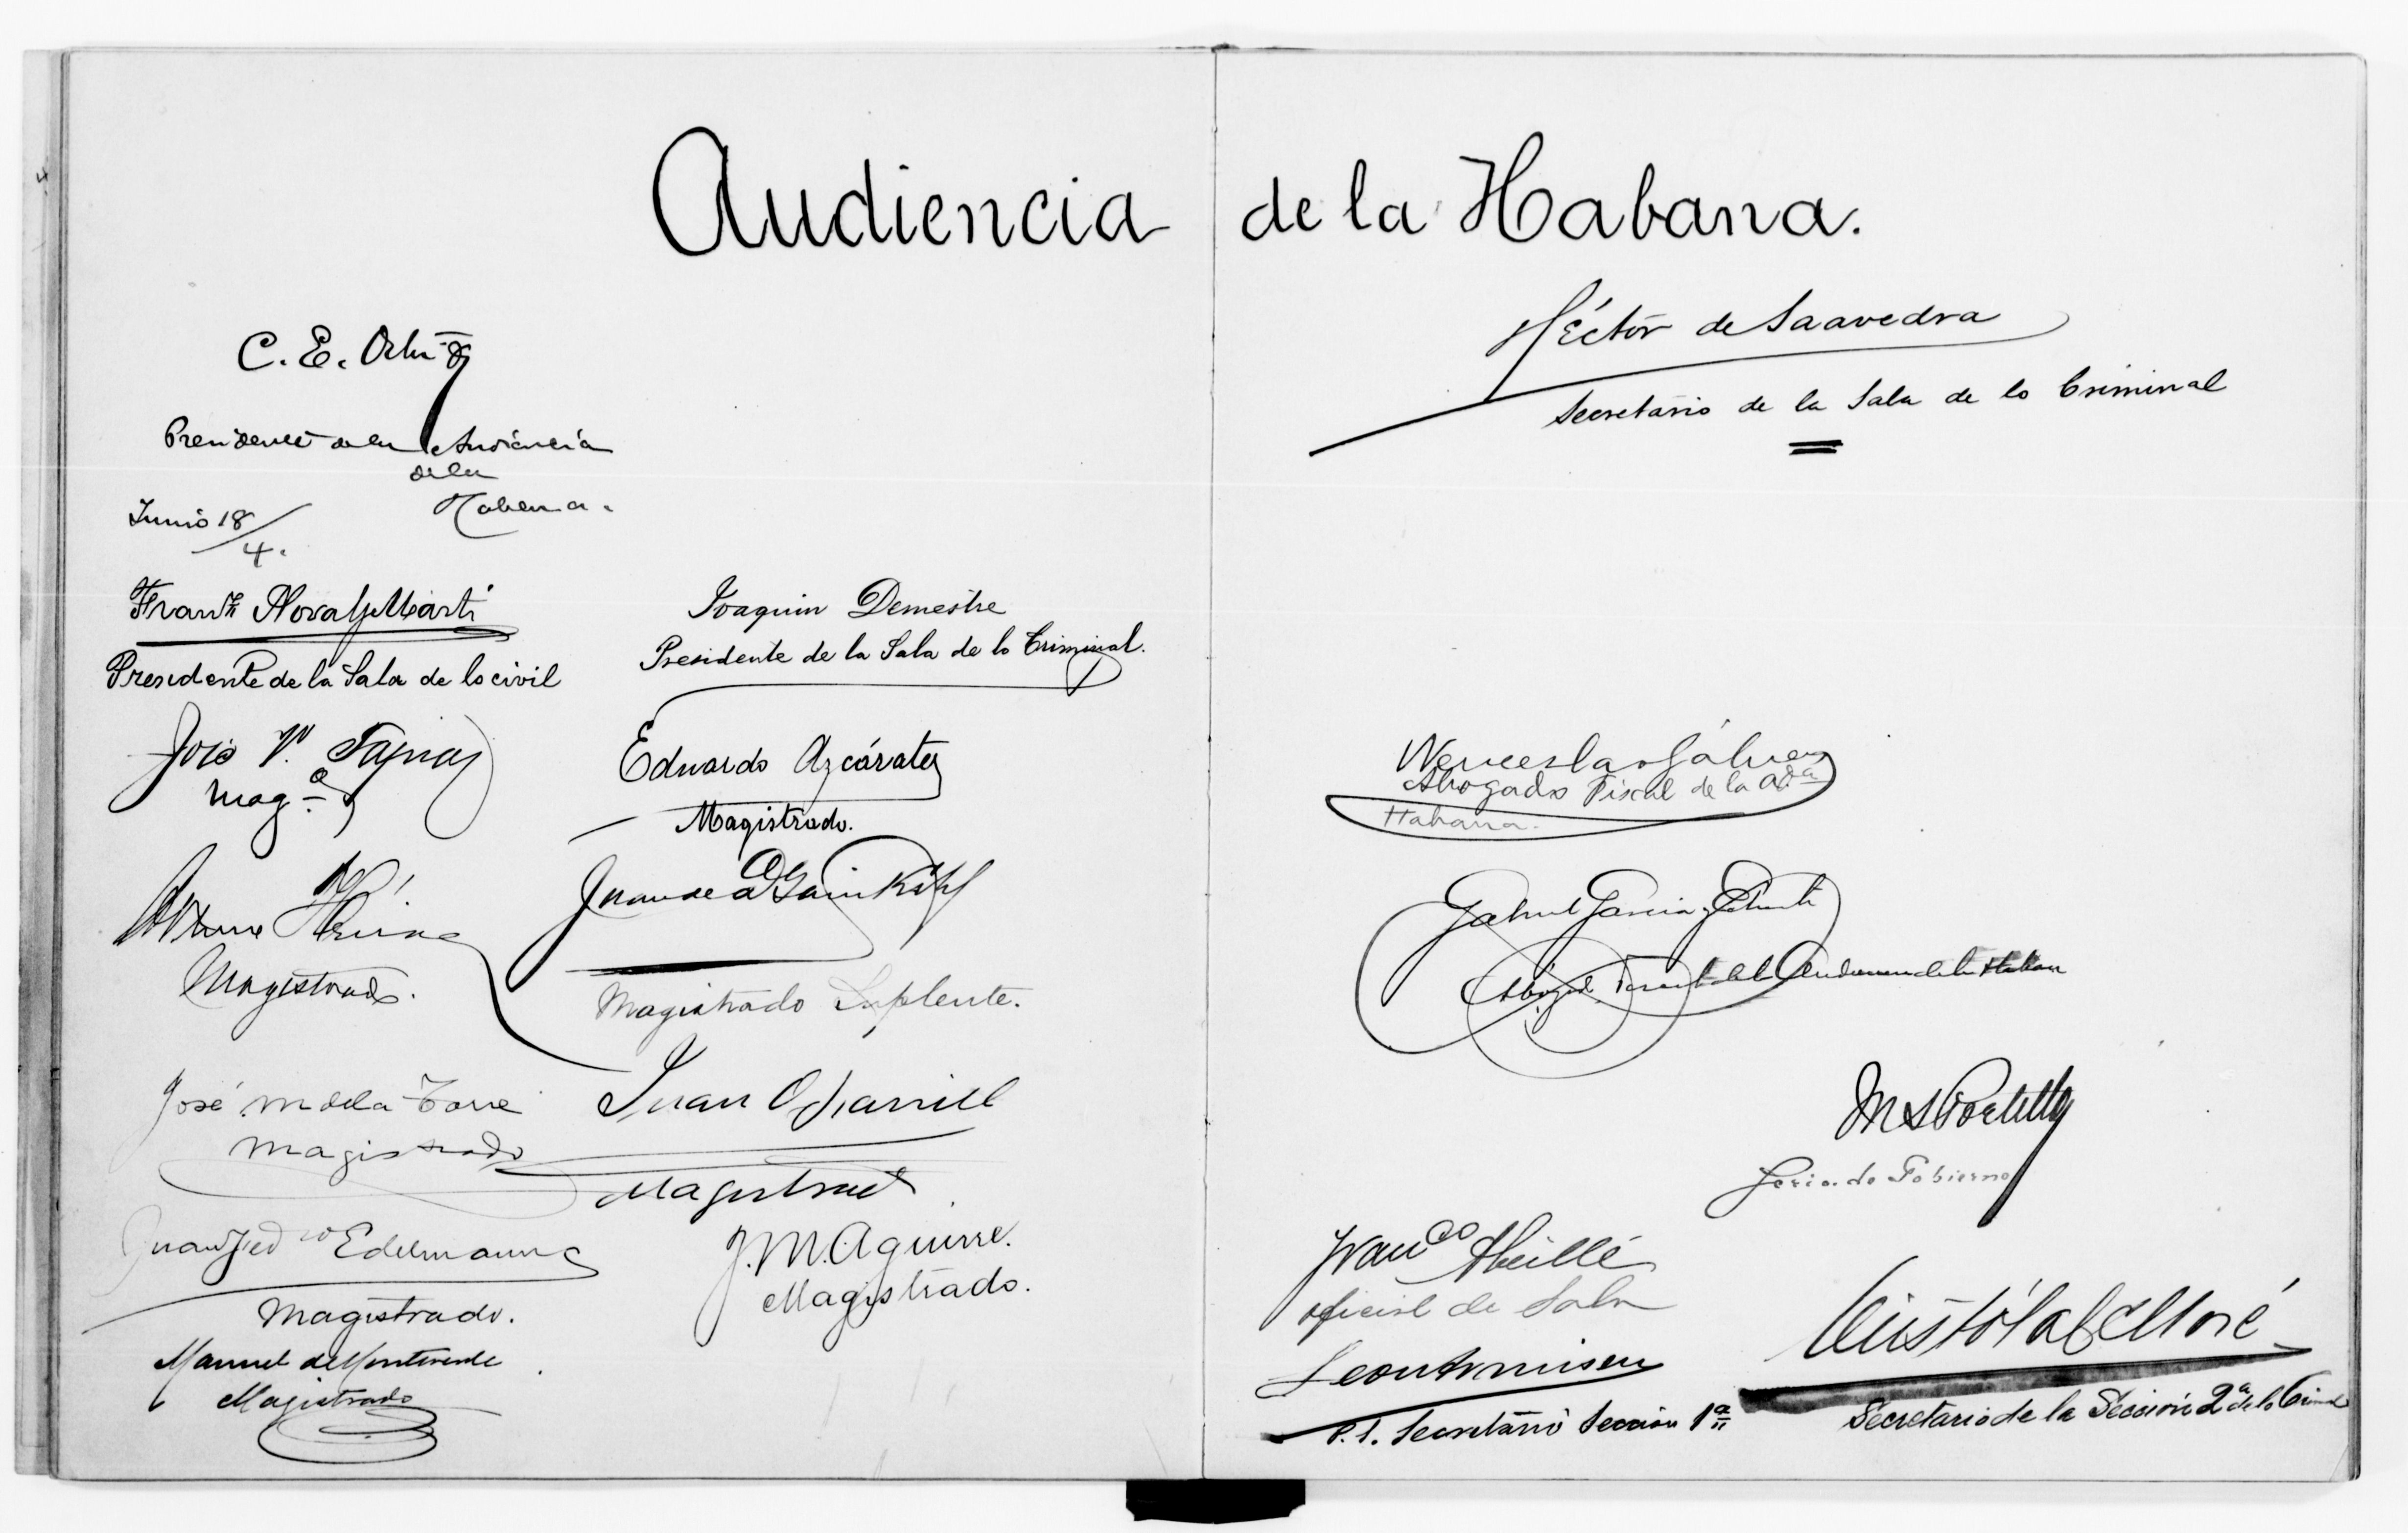 Audiencia de la Habana.
C. E. Ortiz
Presidente de la Audiencia
de la
Habana.
Junio 18/4.
Franco Noval y Martí
Presidente de la Sala de lo civil
José V. Tapia
Mago
Arturo Hevia
Magistrado.
José M de la Torre
Magistrado
Juan Fedco Edelmann
Magistrado.
Manuel de Monteverde
Magistrado
Joaquin Demestre
Presidente de la Sala de lo Criminal.
Eduardo Azcárate
Magistrado.
Juan de
Magistrado Suplente.
Juan O'Farrill
Magistrado
J. M. Aguirre.
Magistrado.
Héctor de Saavedra
Secretario de la Sala de lo Criminal
Wenceslao Gálvez
Abogado Fiscal de la Ada
Habana.
Gabriel García
Abogado de la Audiencia de la Habana
M S Portillo
Srio. de Gobierno
Franco Abeillé
oficial de Sala
Leon Armisen
P. S. Secretario Sección 1a
Cristóbal Moré
Secretario de la Sección 2a de lo